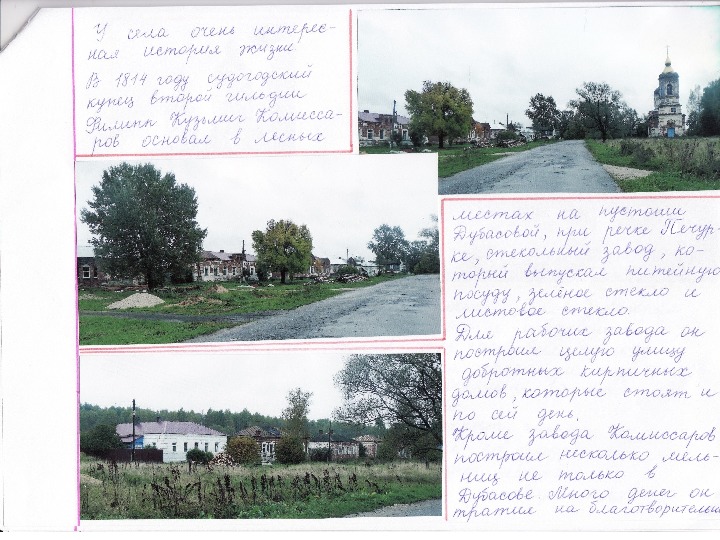 У села очень интерес-
ная история жизни.
В 1814 году судогодский
купец второй гильдии
Филипп Кузьмич Комисса-
ров основал в лесных
местах на пустоши
Дубасовой, при речке Печур-
ке, стекольный завод, ко-
торый выпускал питейную
посуду, зелёное стекло и
листовое стекло.
Для рабочих завода он
построил целую улицу
добротных кирпичных
домов, которые стоят и
по сей день.
Кроме завода Комиссаров
построил несколько мель-
ниц не только в
Дубасове. Много денег он
тратил на благотворительн